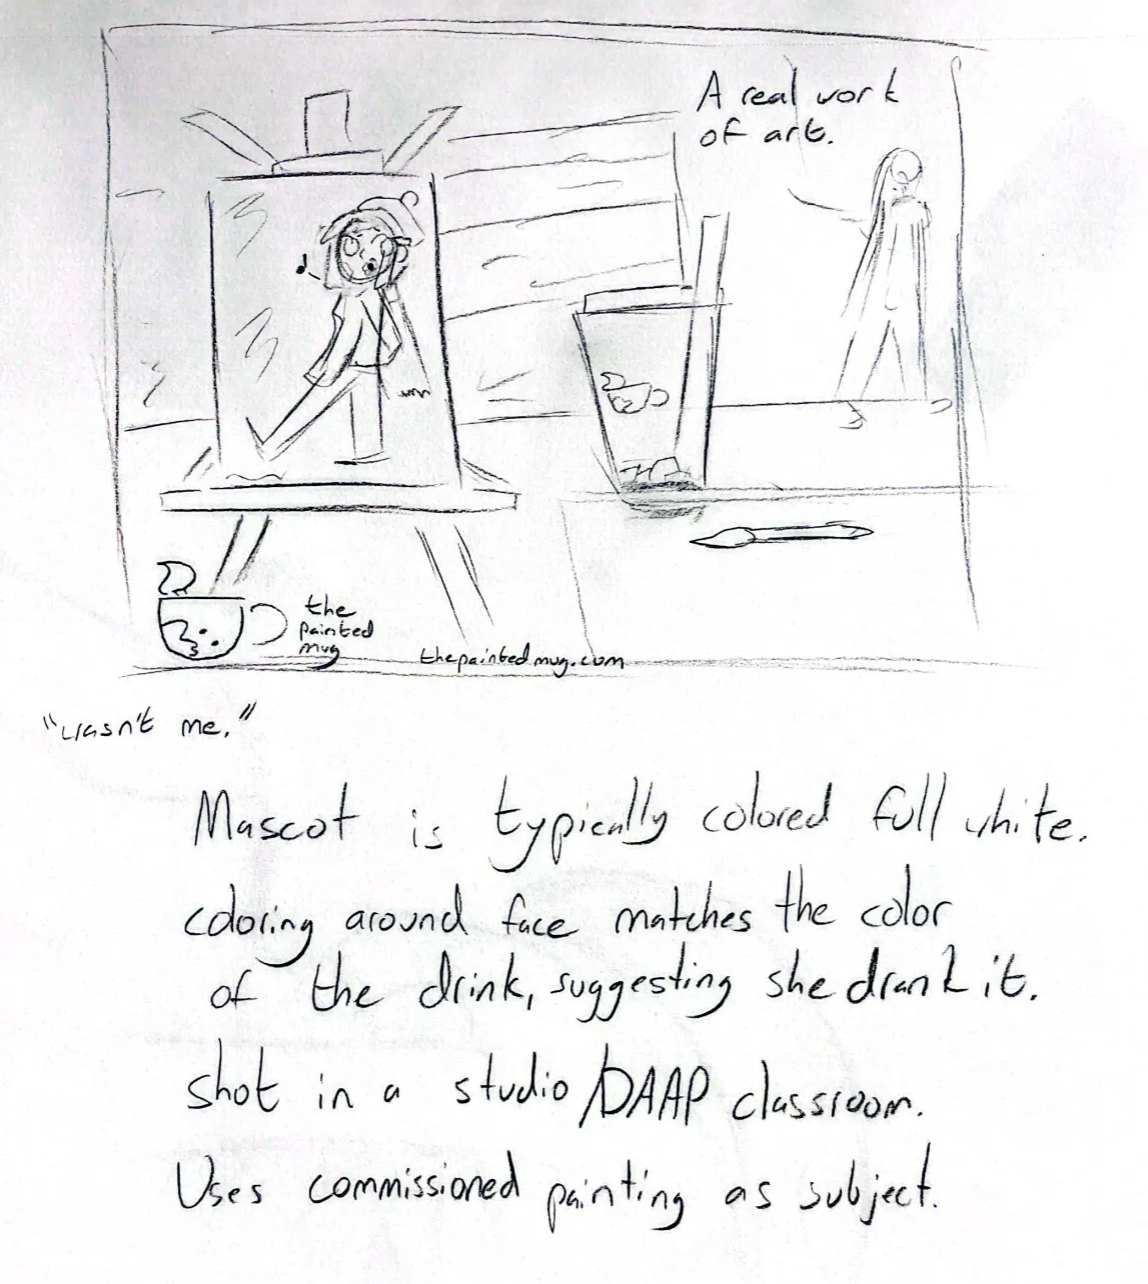 A real work
of art.
the
painted
mug
thepaintedmug.com
"wasn't me."
Mascot is typically colored full white.
coloring around face matches the color
of the drink, suggesting she drank it.
shot in a studio/DAAP classroom.
Uses commissioned painting as subject.